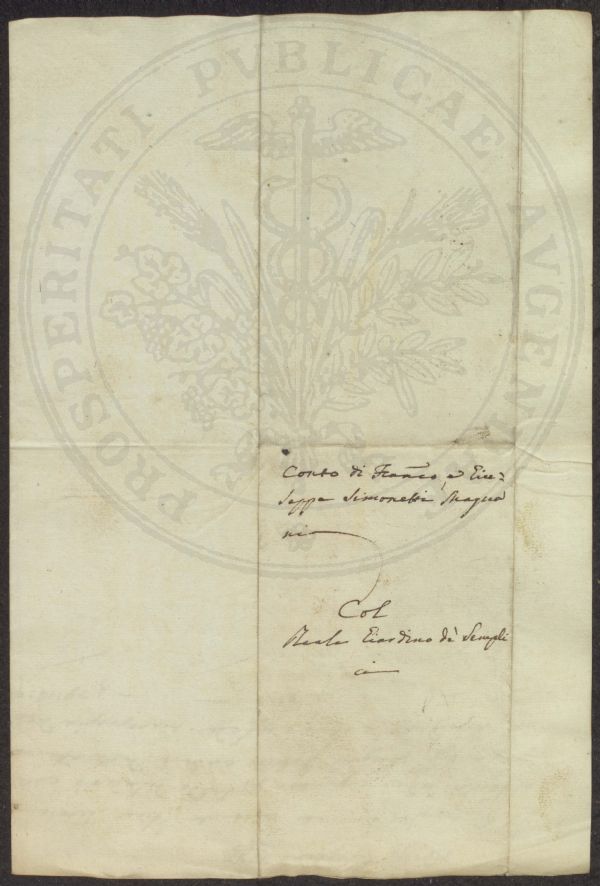 PROSPERITATI PVBLICAE AVGENDAE
Conto di Franco, e Giu=
seppe Simonetti Magna
ni
Col
Reale Giardino dè Sempli
ci